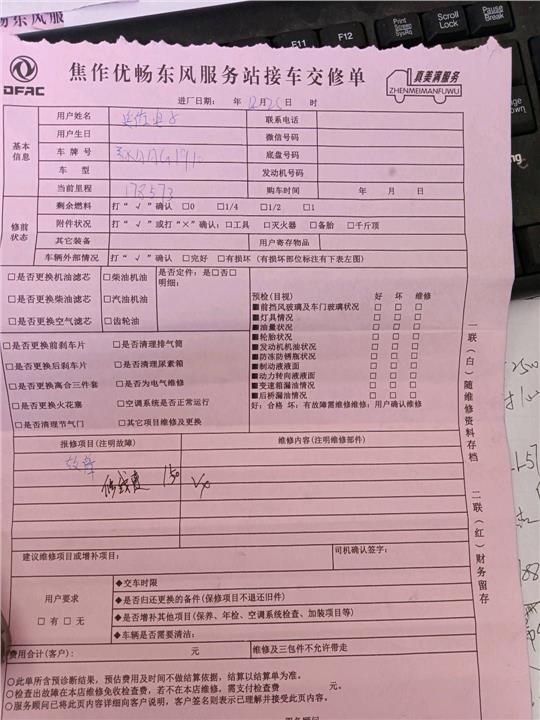 东风服
F11
F12
Print Screen SysRq
Scroll Lock
Pause Break
DFAC
焦作优畅东风服务站接车交修单
真美满服务
ZHENMEIMANFUWU
进厂日期: 年 12月25日 时
基本信息
用户姓名
联系电话
用户生日
微信号码
车牌号
底盘号码
车型
发动机号码
当前里程 178573
购车时间 年 月 日
修前状态
剩余燃料 打“√”确认 □0 □1/4 □1/2 □1
附件状况 打“√”或打“×”确认: □工具 □灭火器 □备胎 □千斤顶
其它装备
用户寄存物品
车辆外部情况 打“√”确认 □完好 □有损坏 (有损坏部位标注有下表左图)
□是否更换机油滤芯
□柴油机油
是否定件: 是□否□
明细:
□是否更换柴油滤芯
□汽油机油
□是否更换空气滤芯
□齿轮油
预检(目视) 好 坏 维修
■前挡风玻璃及车门玻璃状况 □ □ □
■灯具情况 □ □ □
■油量状况 □ □ □
■轮胎状况 □ □ □
■发动机机油状况 □ □ □
■防冻防锈瓶状况 □ □ □
■制动液液面 □ □ □
■动力转向液液面 □ □ □
■变速箱漏油情况 □ □ □
■后桥漏油情况 □ □ □
好: 合格 坏: 有故障需维修维修: 用户确认维修
□是否更换前刹车片
□是否清理排气筒
□是否更换后刹车片
□是否清理尿素箱
□是否更换离合三件套
□是否为电气维修
□是否更换火花塞
□空调系统是否正常运行
□是否清理节气门
□其它项目维修及更换
一联(白)随维修资料存档
二联(红)财务留存
报修项目(注明故障)
维修内容(注明维修部件)
故障
修线束 150
建议维修项目或增补项目:
司机确认签字:
用户要求
□有 □无
◆交车时限
◆是否归还更换的备件(保修项目不退还旧件)
◆是否增补其他项目(保养、年检、空调系统检查、加装项目等)
◆车辆是否需要清洁:
费用合计(客户): 元
维修及三包件不允许带走
○此单所含预诊断结果, 预估费用及时间不做结算依据, 结算以结算单为准。
○检查出故障在本店维修免收检查费, 若不在本店维修, 需支付检查费 元。
○服务顾问已将此页内容详细向客户说明, 客户签名则表示已理解并接受此页内容。
服务顾问